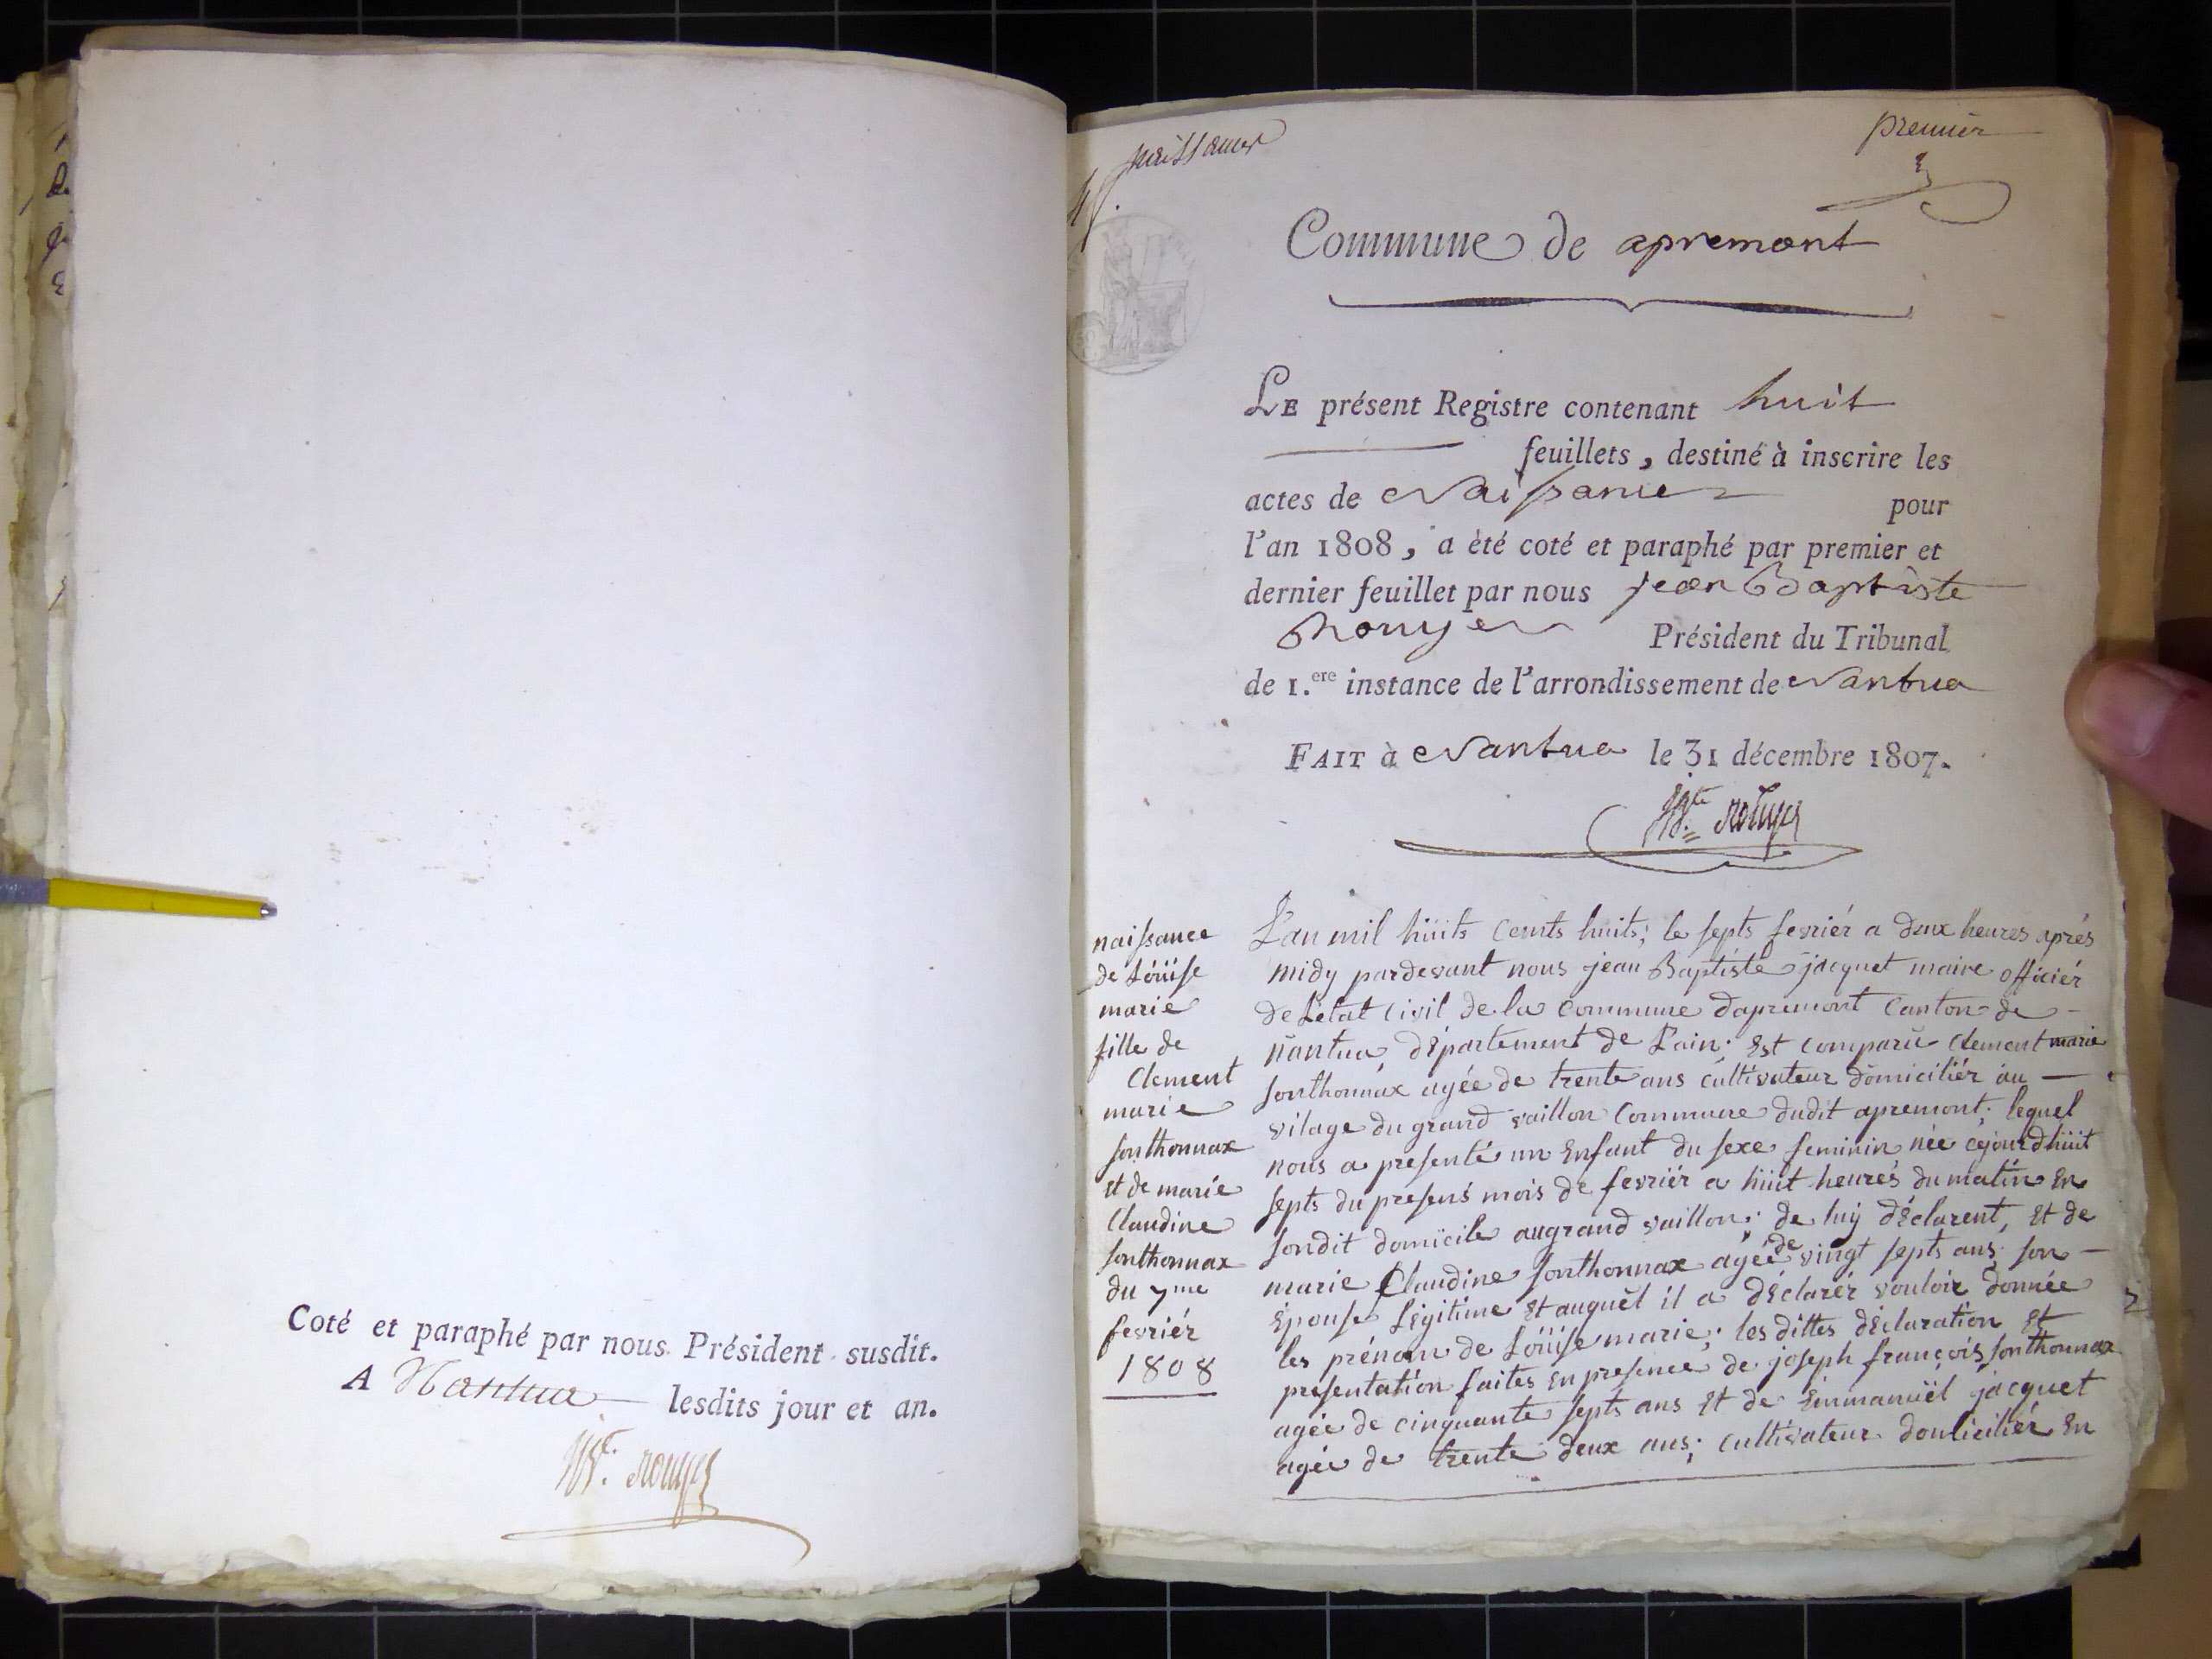 Coté et paraphé par nous Président susdit.
A Nantua lesdits jour et an.
Jn Bte. Rouyer
naissances
premier
Commune de apremont
LE présent Registre contenant huit
feuillets, destiné à inscrire les
actes de Naissances pour
l'an 1808, a été coté et paraphé par premier et
dernier feuillet par nous jean Baptiste
Rouyer Président du Tribunal
de 1.ere instance de l'arrondissement de Nantua
FAIT à Nantua le 31 décembre 1807.
Rouyer
naissance
de Loüise
marie
fille de
Clement
marie
sonthonnax
et de marie
Claudine
sonthonnax
du 7me
fevriér
1808
L'an mil huits cents huits; le septs fevriér a deux heures aprés
midy pardevant nous jean Baptiste jacquet maire officiér
de L'état Civil de la Commune dapremont Canton de
nantua département de L'ain; Est comparu Clement marie
sonthonnax agée de trente ans cultivateur domiciliér au
vilage du grand vaillon Commune dudit apremont; lequel
nous a presenté un Enfant du sexe feminin née cejourdhüit
septs du presens mois de fevriér a huit heures du matin En
sondit domicile augrand vaillon; de luy déclarent, Et de
marie Claudine sonthonnax agée de vingt septs ans; son
Epouse Légitime Et auquel il a déclarér vouloir donnée
les prénom de Loüise marie; les dittes déclaration Et
presentation faites En presence de joseph françois sonthonnax
agée de cinquante septs ans Et de Emmanüel jacquet
agée de trente deux ans; cultivateur domiciliér En